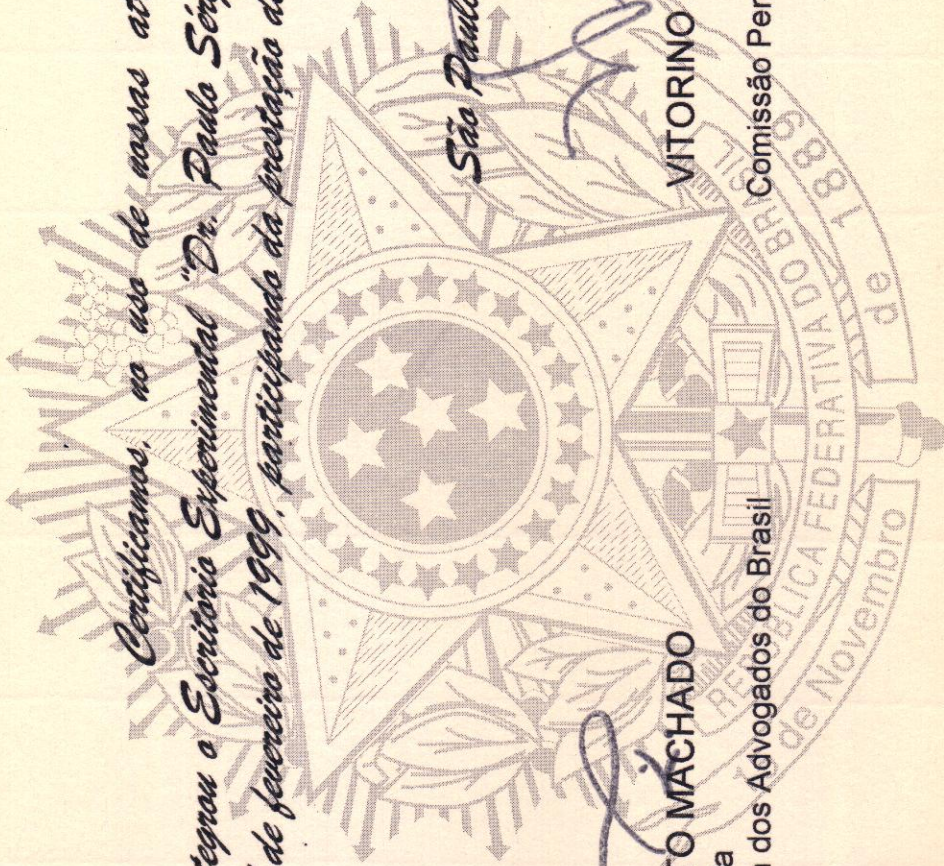 Certificamos, no uso de nossas
o Escritório Experimental "Dr. Paulo
de fevereiro de 1999, participando da prestação
São Paulo
O MACHADO
VITORINO
dos Advogados do Brasil
Comissão
REPÚBLICA FEDERATIVA DO BRASIL
de Novembro
de 1889